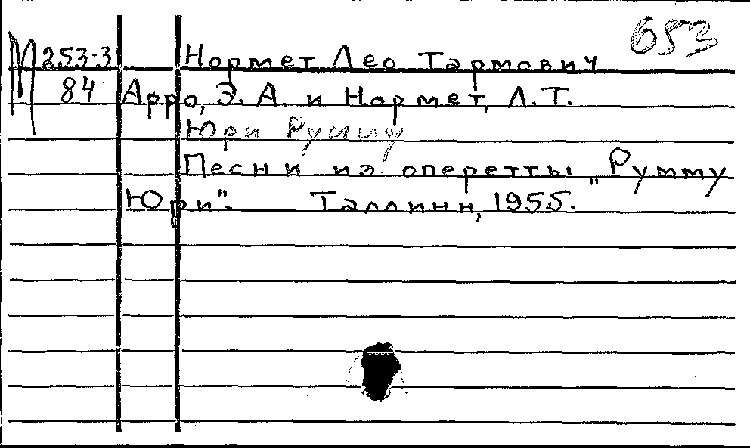 653
М 253-3 Нормет Лео Тармович
84 Арро, Э. А. и Нормет, Л. Т.
Юри Румму
Песни из оперетты „Румму
Юри". Таллинн, 1955.